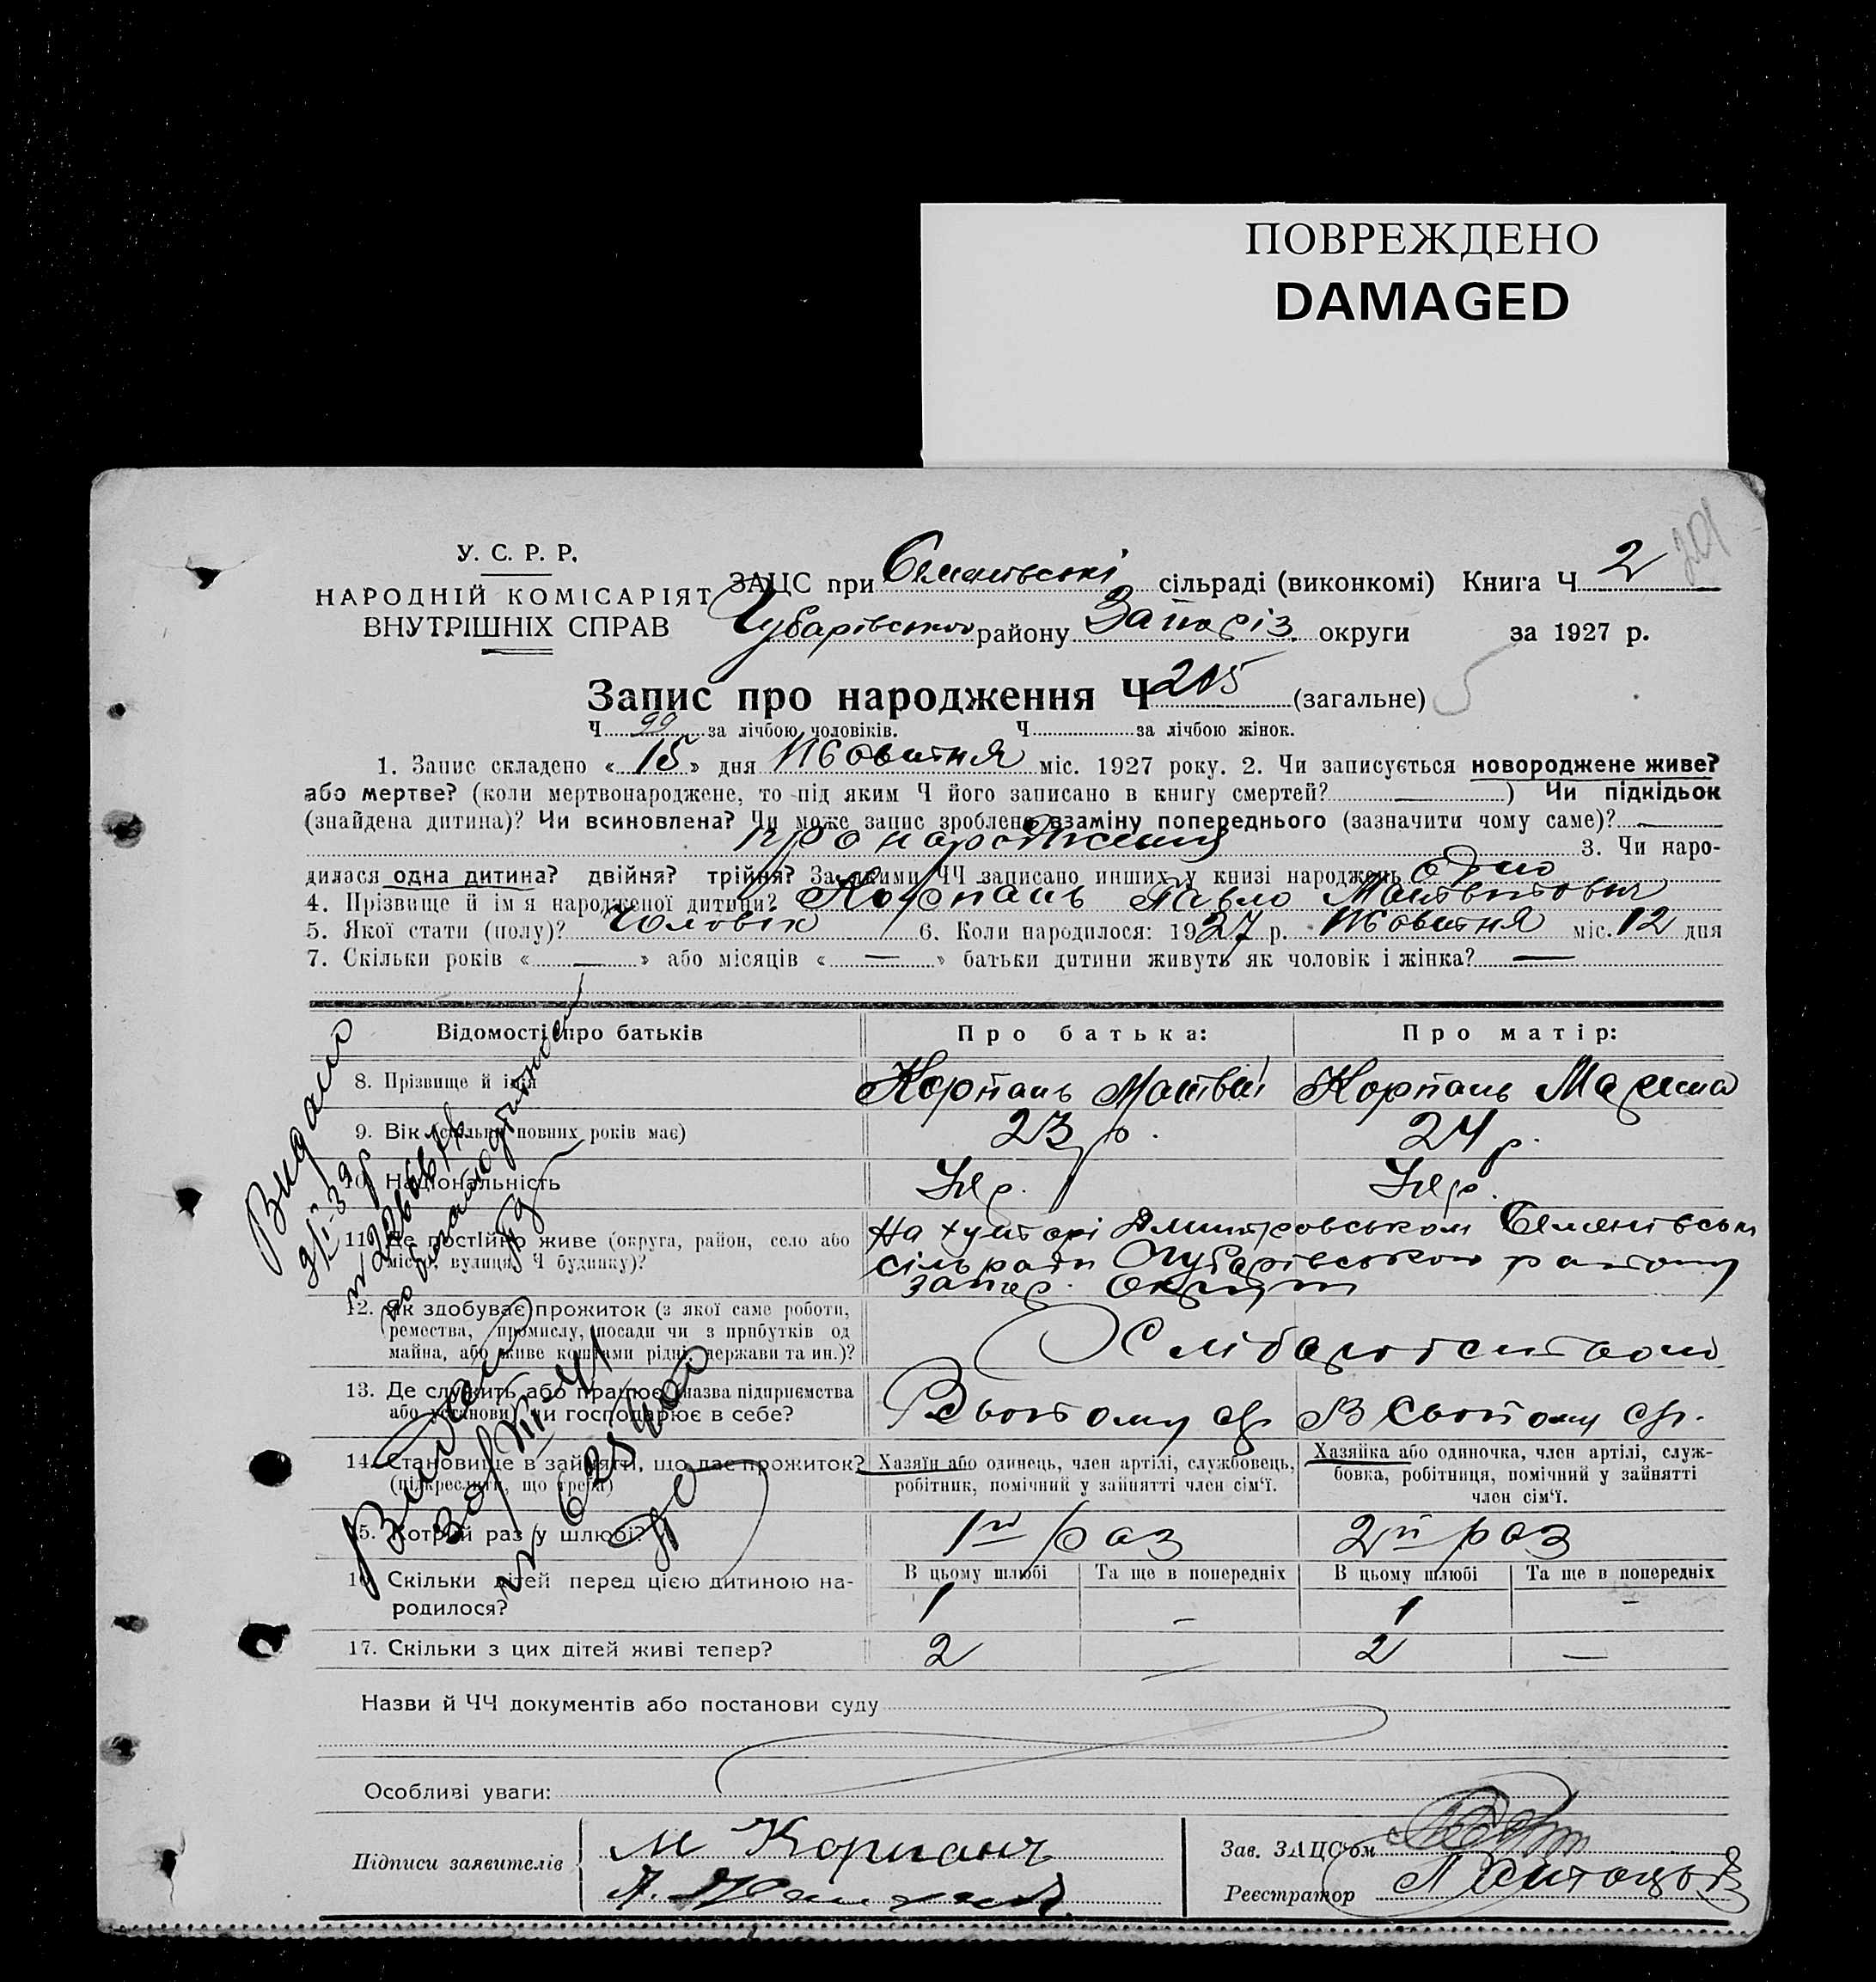 ПОВРЕЖДЕНО
DAMAGED
201
У. С. Р. Р.
НАРОДНІЙ КОМІСАРІЯТ
ВНУТРІШНІХ СПРАВ
ЗАЦС при Семенівські сільраді (виконкомі) Книга Ч 2
Чубарівського району Запоріз. округи за 1927 р.
Запис про народження Ч 205 (загальне) 5
Ч 99 за лічбою чоловіків. Ч за лічбою жінок.
1. Запис складено « 15 » дня Жовтня міс. 1927 року. 2. Чи записується новороджене живе?
або мертве? (коли мертвонароджене, то під яким Ч його записано в книгу смертей? —) Чи підкідьок
(знайдена дитина)? Чи всиновлена? Чи може запис зроблено взаміну попереднього (зазначити чому саме)? —
про народження 3. Чи наро-
дилася одна дитина? двійня? трійня? За якими ЧЧ записано инших у книзі народжень одно
4. Прізвище й ім я народженої дитини? Корпань Павло Матвійович
5. Якої стати (полу)? Чоловік 6. Коли народилося: 1927 р. Жовтня міс. 12 дня
7. Скільки років « — » або місяців « — » батьки дитини живуть як чоловік і жінка? —
Відомості про батьків Про батька: Про матір:
8. Прізвище й імя Корпань Матвій Корпань
9. Вік (скільки повних років має) 23 р. 24 р.
10. Національність Укр. Укр.
11. Де постійно живе (округа, район, село або
місто, вулиця, Ч будинку)?
На хуторі Дмитровськом Семенівськ
сільради Чубарівського району
запор. округи
12. Як здобуває прожиток (з якої саме роботи,
ремества, промислу, посади чи з прибутків од
майна, або живе коштами рідні, держави та ин.)?
Хліборобством
13. Де служить або працює (назва підприємства
або установи) чи господарює в себе?
В свойому гр. В свойому гр.
14. Становище в зайнятті, що дає прожиток?
(підкреслити, що треба)
Хазяїн або одинець, член артілі, службовець,
робітник, помічний у зайнятті член сім'ї.
Хазяйка або одиночка, член артілі, служ-
бовка, робітниця, помічний у зайнятті
член сім'ї.
15. Котрий раз у шлюбі? 1й раз 2й раз
16. Скільки дітей перед цією дитиною на-
родилося?
В цьому шлюбі Та ще в попередніх В цьому шлюбі Та ще в попередніх
1 – 1 –
17. Скільки з цих дітей живі тепер? 2 — 2 —
Видано
Назви й ЧЧ документів або постанови суду
Особливі уваги:
Підписи заявителів М Корпань
Зав. ЗАЦС'ом
Реєстратор